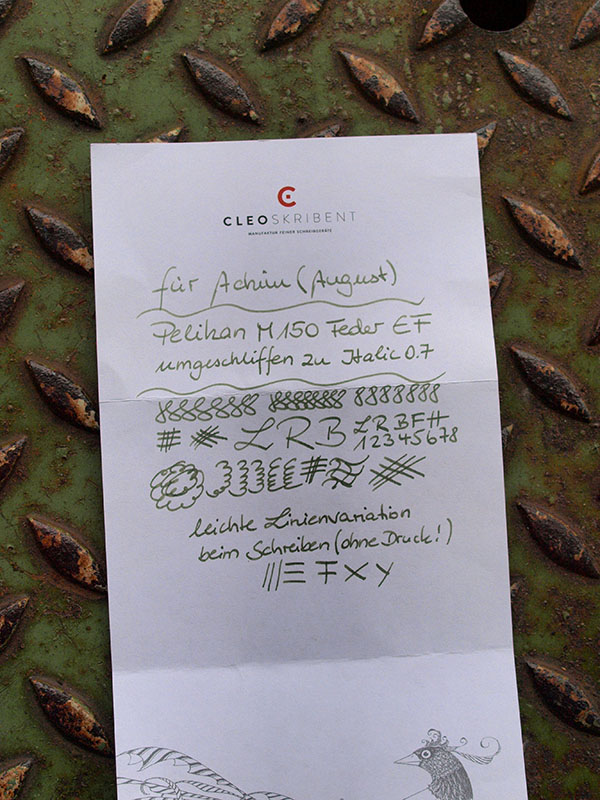 CLEOSKRIBENT
MANUFAKTUR FEINER SCHREIBGERÄTE
für Achim (August)
Pelikan M 150 Feder EF
umgeschliffen zu Italic 0.7
88888888 88888888 88888888
# L R B L R B F H
1 2 3 4 5 6 7 8
#
leichte Linienvariation
beim Schreiben (ohne Druck!)
|||Ξ F X Y